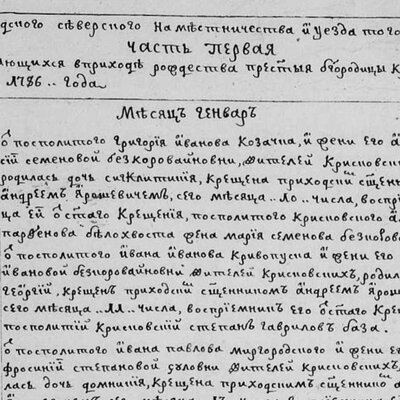 дского сѣверского намѣстничества и уезда того
часть первая
ающихся вприходѣ рождества престыя бгородицы к
1786.. года
Мѣсяцъ генваръ
посполитого григория иванова козачка, и жени его
сий семеновой безкоровайновни, жителей крисковски
родилась дочь сигклитиния, крещена приходскій сщен
андреемъ ярошевичемъ, сего мѣсяца .. числа, воспр
ца ей стаго крещения, посполитого крисковского
парфенова бѣлохвоста жена мария семенова безкоров
посполитого ивана иванова кривопуста и жени его
ивановой безкоровайновни жителей крисковскихъ, роди
георгий, крещен приходскій сщенником андреемъ яро
сего мѣсяца .. числа, восприемник его стаго кре
посполитий крисковский степанъ гаврилов база.
посполитого ивана павлова миргородского и жени е
фросинии степановой жителей крисковскихъ,
лась дочь домникия, крещена приходским сщенник